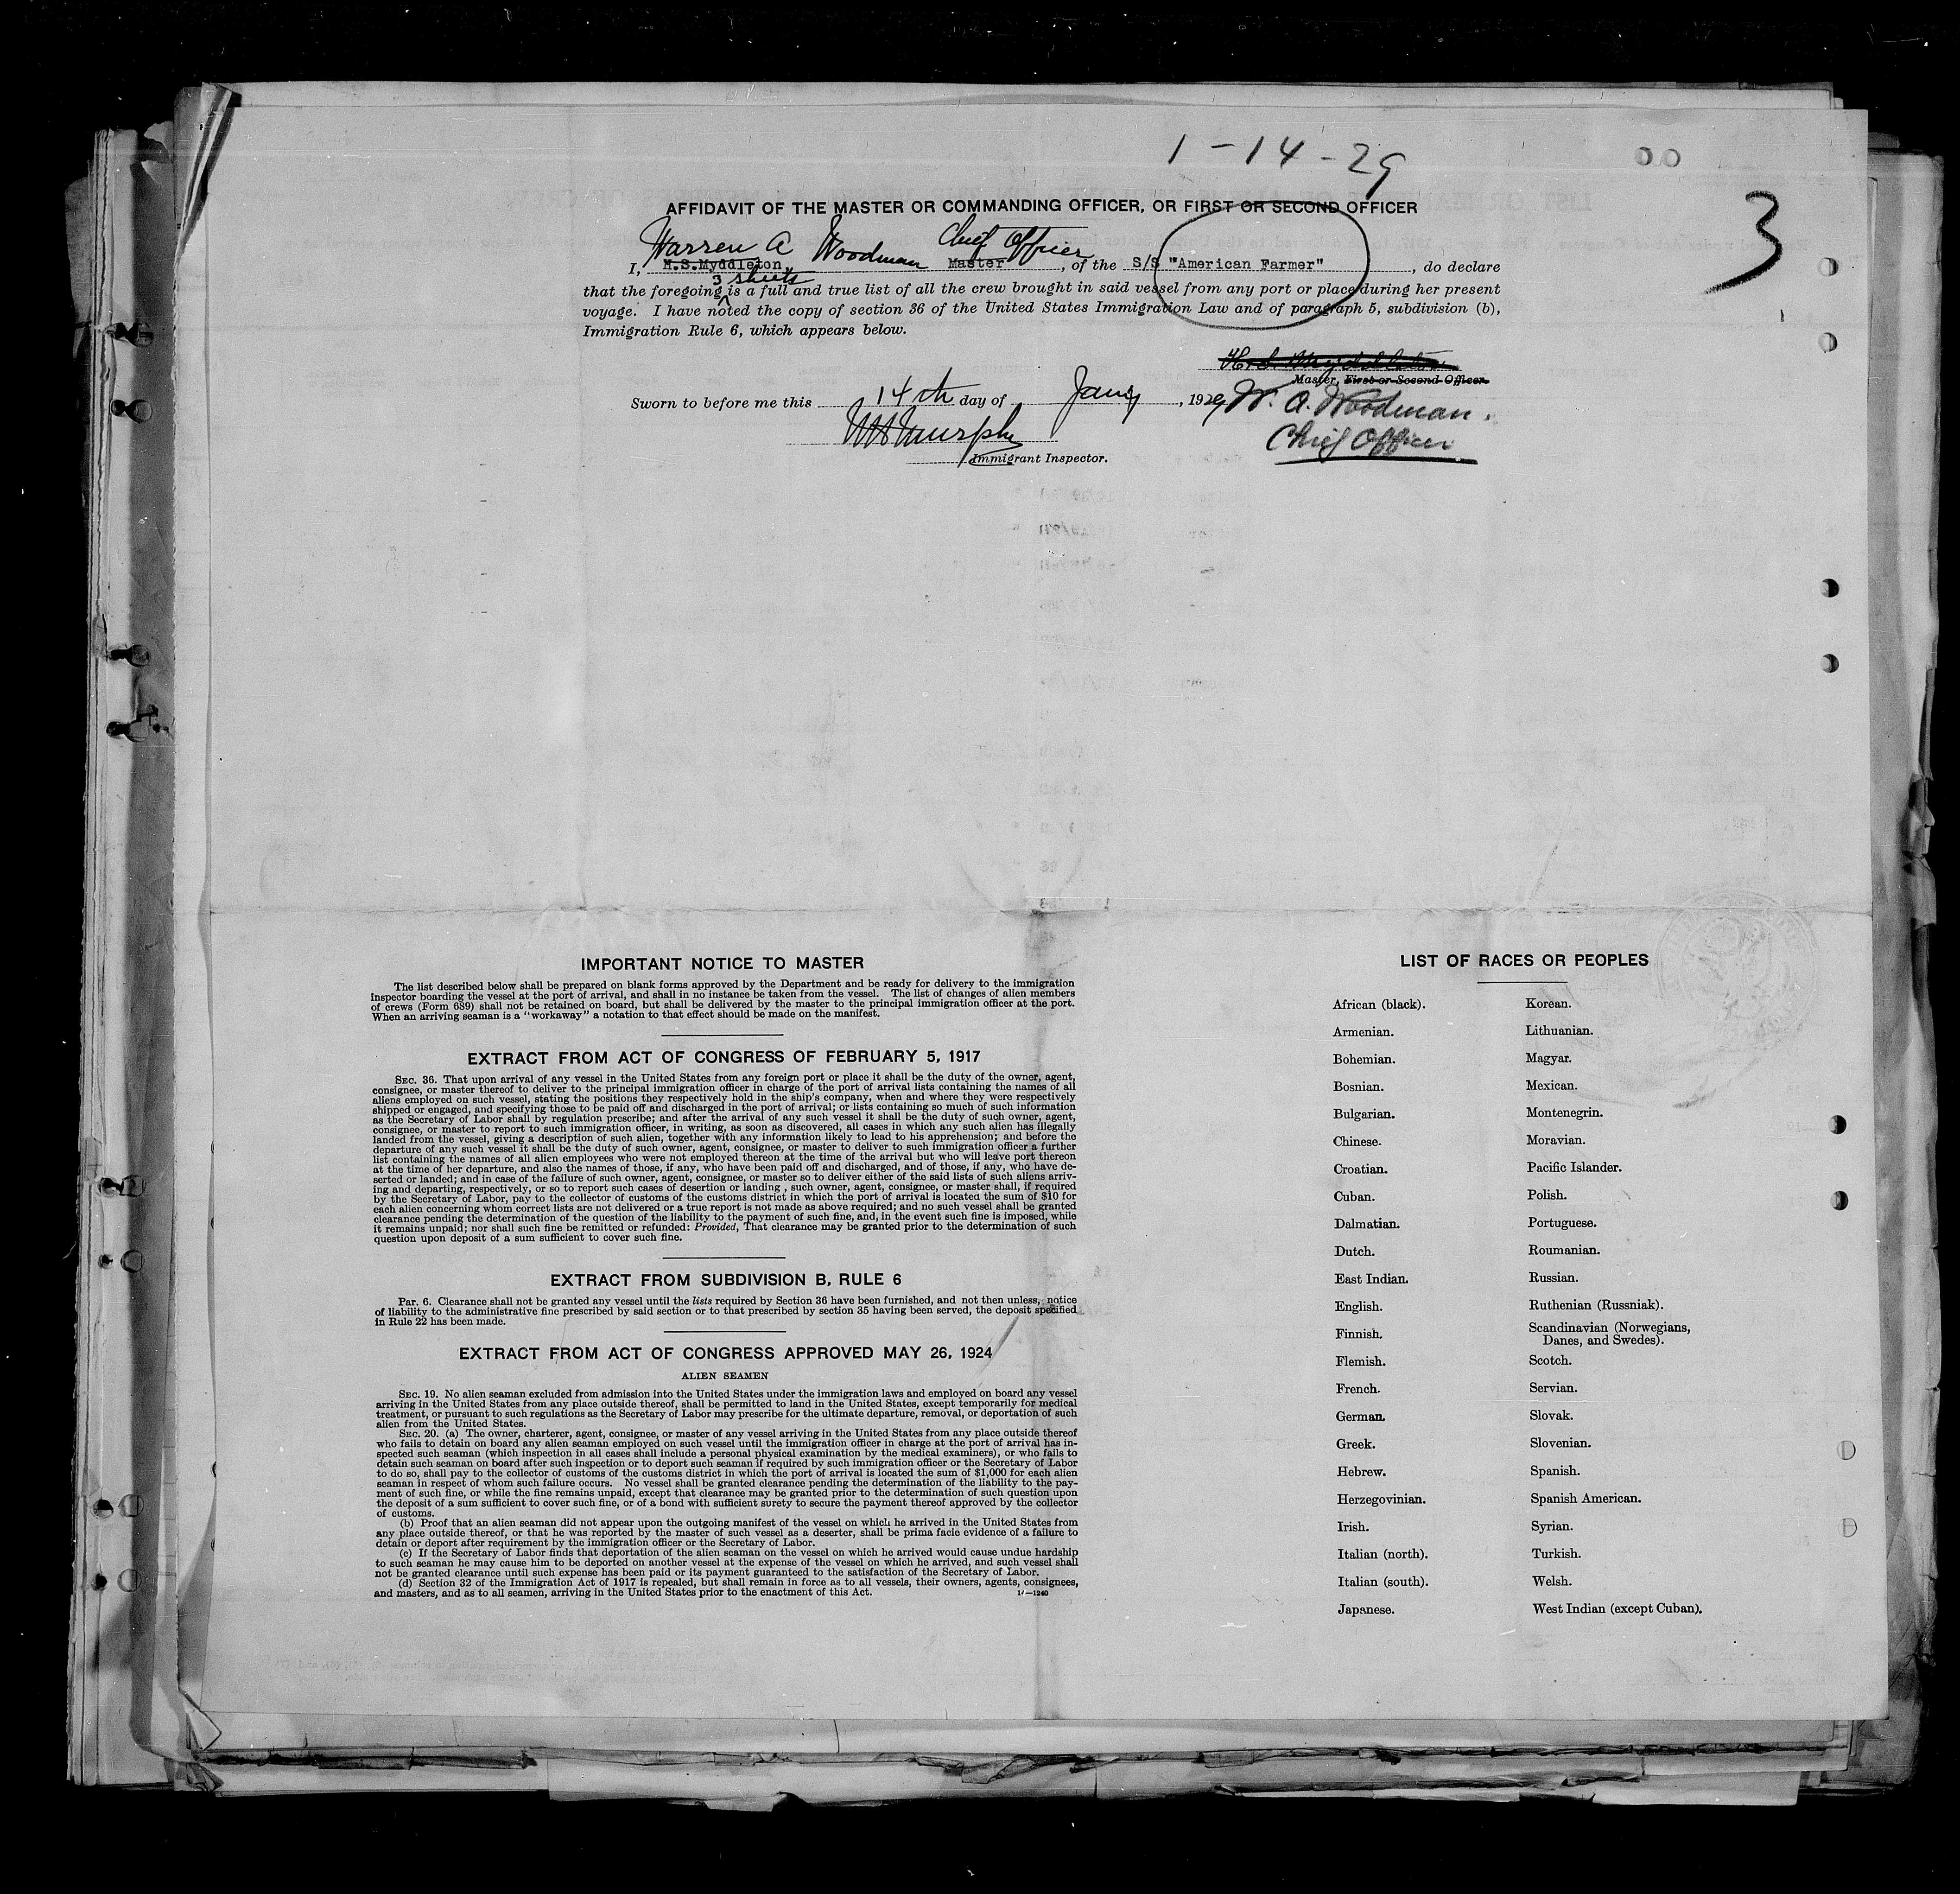 1-14-29
3
AFFIDAVIT OF THE MASTER OR COMMANDING OFFICER, OR FIRST OR SECOND OFFICER
Warren A Woodman Chief Officer
I, H.S.Myddleton, Master, of the S/S "American Farmer", do declare
3 sheets
that the foregoing is a full and true list of all the crew brought in said vessel from any port or place during her present
voyage. I have noted the copy of section 36 of the United States Immigration Law and of paragraph 5, subdivision (b),
Immigration Rule 6, which appears below.
H.S. Myddleton
Master, First or Second Officer.
Sworn to before me this 14th day of Jany, 1929, W. A. Woodman.
Murphy Chief Officer
Immigrant Inspector.
IMPORTANT NOTICE TO MASTER
The list described below shall be prepared on blank forms approved by the Department and be ready for delivery to the immigration
inspector boarding the vessel at the port of arrival, and shall in no instance be taken from the vessel. The list of changes of alien members
of crews (Form 689) shall not be retained on board, but shall be delivered by the master to the principal immigration officer at the port.
When an arriving seaman is a "workaway" a notation to that effect should be made on the manifest.
EXTRACT FROM ACT OF CONGRESS OF FEBRUARY 5, 1917
SEC. 36. That upon arrival of any vessel in the United States from any foreign port or place it shall be the duty of the owner, agent,
consignee, or master thereof to deliver to the principal immigration officer in charge of the port of arrival lists containing the names of all
aliens employed on such vessel, stating the positions they respectively hold in the ship's company, when and where they were respectively
shipped or engaged, and specifying those to be paid off and discharged in the port of arrival; or lists containing so much of such information
as the Secretary of Labor shall by regulation prescribe; and after the arrival of any such vessel it shall be the duty of such owner, agent,
consignee, or master to report to such immigration officer, in writing, as soon as discovered, all cases in which any such alien has illegally
landed from the vessel, giving a description of such alien, together with any information likely to lead to his apprehension; and before the
departure of any such vessel it shall be the duty of such owner, agent, consignee, or master to deliver to such immigration officer a further
list containing the names of all alien employees who were not employed thereon at the time of the arrival but who will leave port thereon
at the time of her departure, and also the names of those, if any, who have been paid off and discharged, and of those, if any, who have de-
serted or landed; and in case of the failure of such owner, agent, consignee, or master so to deliver either of the said lists of such aliens arriv-
ing and departing, respectively, or so to report such cases of desertion or landing , such owner, agent, consignee, or master shall, if required
by the Secretary of Labor, pay to the collector of customs of the customs district in which the port of arrival is located the sum of $10 for
each alien concerning whom correct lists are not delivered or a true report is not made as above required; and no such vessel shall be granted
clearance pending the determination of the question of the liability to the payment of such fine, and, in the event such fine is imposed, while
it remains unpaid; nor shall such fine be remitted or refunded: Provided, That clearance may be granted prior to the determination of such
question upon deposit of a sum sufficient to cover such fine.
EXTRACT FROM SUBDIVISION B, RULE 6
Par. 6. Clearance shall not be granted any vessel until the lists required by Section 36 have been furnished, and not then unless, notice
of liability to the administrative fine prescribed by said section or to that prescribed by section 35 having been served, the deposit specified
in Rule 22 has been made.
EXTRACT FROM ACT OF CONGRESS APPROVED MAY 26, 1924
ALIEN SEAMEN
SEC. 19. No alien seaman excluded from admission into the United States under the immigration laws and employed on board any vessel
arriving in the United States from any place outside thereof, shall be permitted to land in the United States, except temporarily for medical
treatment, or pursuant to such regulations as the Secretary of Labor may prescribe for the ultimate departure, removal, or deportation of such
alien from the United States.
SEC. 20. (a) The owner, charterer, agent, consignee, or master of any vessel arriving in the United States from any place outside thereof
who fails to detain on board any alien seaman employed on such vessel until the immigration officer in charge at the port of arrival has in-
spected such seaman (which inspection in all cases shall include a personal physical examination by the medical examiners), or who fails to
detain such seaman on board after such inspection or to deport such seaman if required by such immigration officer or the Secretary of Labor
to do so, shall pay to the collector of customs of the customs district in which the port of arrival is located the sum of $1,000 for each alien
seaman in respect of whom such failure occurs. No vessel shall be granted clearance pending the determination of the liability to the pay-
ment of such fine, or while the fine remains unpaid, except that clearance may be granted prior to the determination of such question upon
the deposit of a sum sufficient to cover such fine, or of a bond with sufficient surety to secure the payment thereof approved by the collector
of customs.
(b) Proof that an alien seaman did not appear upon the outgoing manifest of the vessel on which he arrived in the United States from
any place outside thereof, or that he was reported by the master of such vessel as a deserter, shall be prima facie evidence of a failure to
detain or deport after requirement by the immigration officer or the Secretary of Labor.
(c) If the Secretary of Labor finds that deportation of the alien seaman on the vessel on which he arrived would cause undue hardship
to such seaman he may cause him to be deported on another vessel at the expense of the vessel on which he arrived, and such vessel shall
not be granted clearance until such expense has been paid or its payment guaranteed to the satisfaction of the Secretary of Labor.
(d) Section 32 of the Immigration Act of 1917 is repealed, but shall remain in force as to all vessels, their owners, agents, consignees,
and masters, and as to all seamen, arriving in the United States prior to the enactment of this Act.
LIST OF RACES OR PEOPLES
African (black). Korean.
Armenian. Lithuanian.
Bohemian. Magyar.
Bosnian. Mexican.
Bulgarian. Montenegrin.
Chinese. Moravian.
Croatian. Pacific Islander.
Cuban. Polish.
Dalmatian. Portuguese.
Dutch. Roumanian.
East Indian. Russian.
English. Ruthenian (Russniak).
Finnish. Scandinavian (Norwegians,
Danes, and Swedes).
Flemish. Scotch.
French. Servian.
German. Slovak.
Greek. Slovenian.
Hebrew. Spanish.
Herzegovinian. Spanish American.
Irish. Syrian.
Italian (north). Turkish.
Italian (south). Welsh.
Japanese. West Indian (except Cuban).